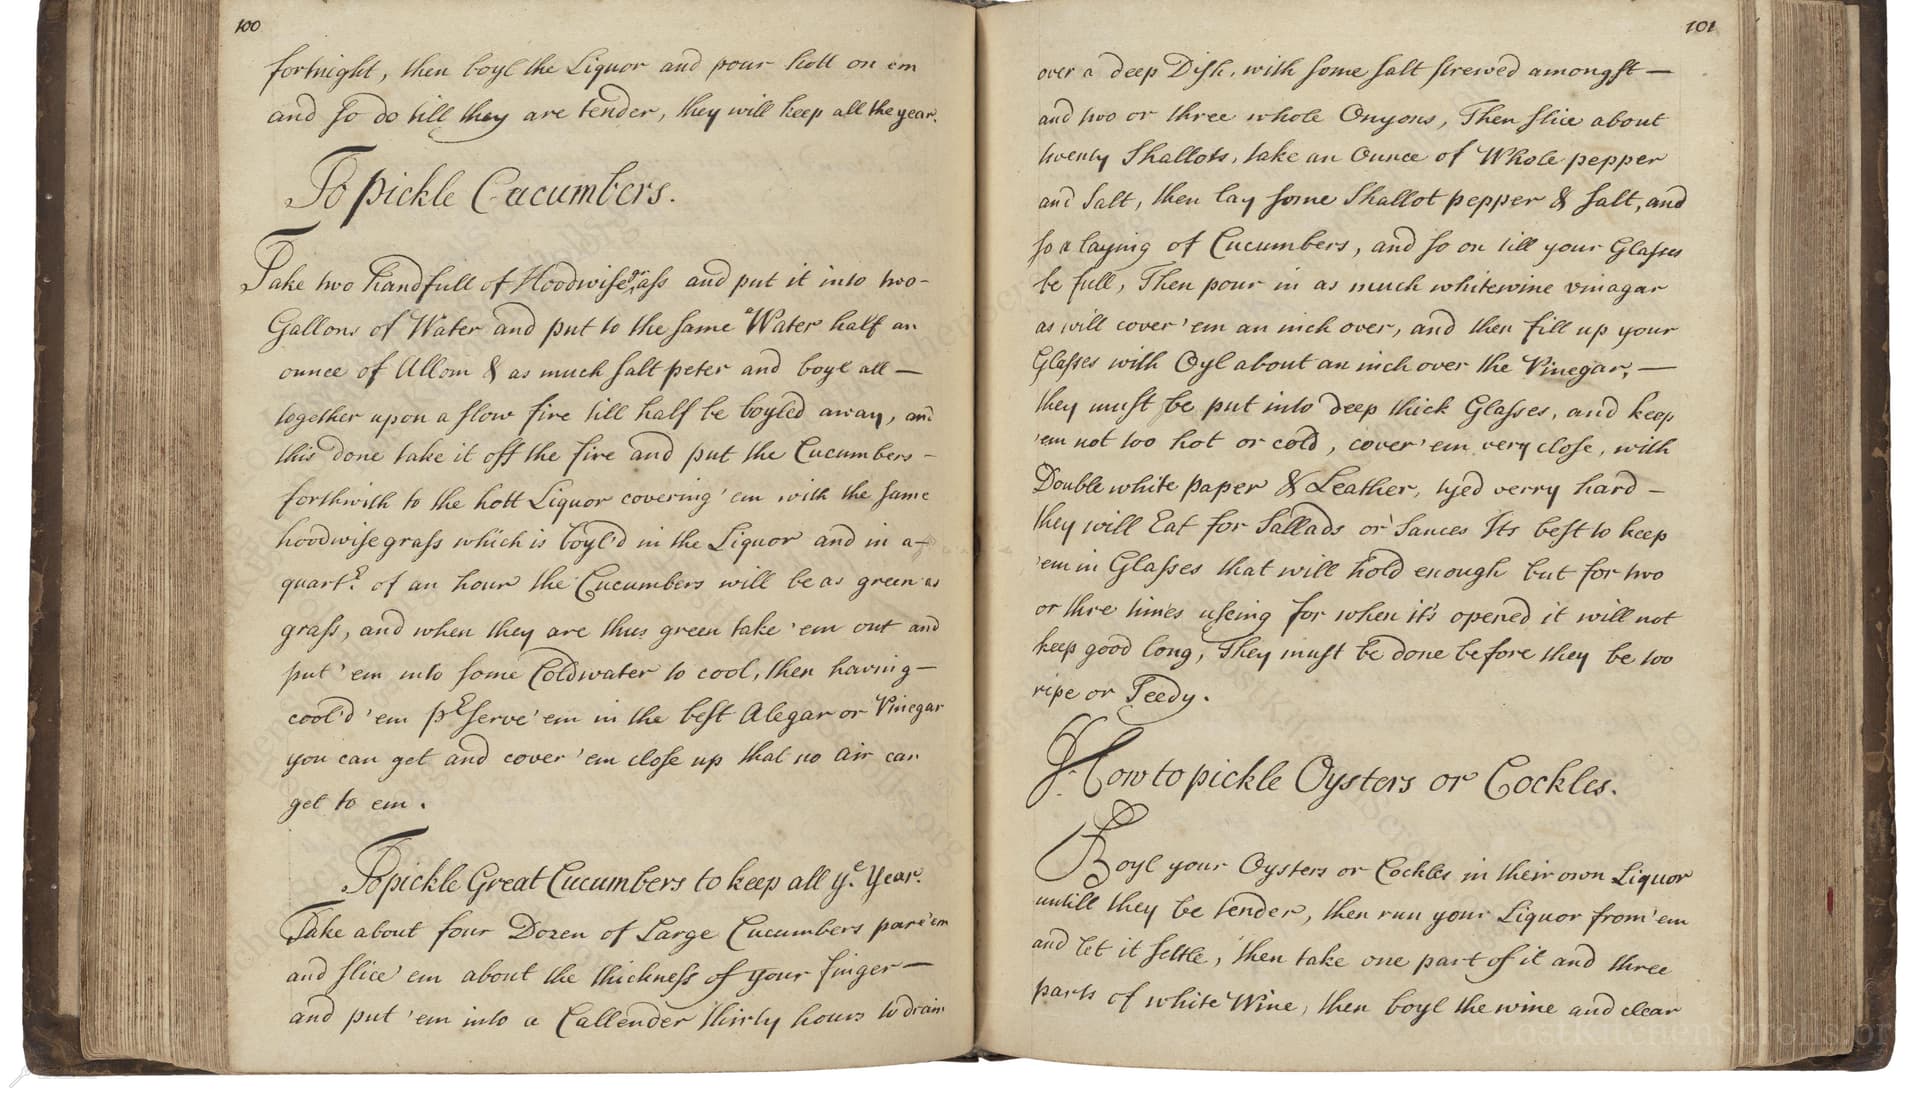 100
fortnight, then boyl the Liquor and pour hott on em
and so do till they are tender, they will keep all the year.
To pickle Cucumbers.
Take two handfull of Hoodwise grass and put it into two-
Gallons of Water and put to the same Water half an
ounce of Allom & as much salt peter and boyl all —
together upon a slow fire till half be boyled away, and
this done take it off the fire and put the Cucumbers -
forthwith to the hott Liquor covering 'em with the same
hoodwise grass which is boyl'd in the Liquor and in a -
quartr. of an hour the Cucumbers will be as green as
grass, and when they are thus green take 'em out and
put 'em into some Cold water to cool, then having —
cool'd 'em preserve 'em in the best Alegar or Vinegar
you can get and cover 'em close up that no air can
get to em.
To pickle Great Cucumbers to keep all ye. Year.
Take about four Dozen of Large Cucumbers pare 'em
and slice 'em about the thickness of your finger —
and put 'em into a Callender thirty hours to drain
101
over a deep Dish, with some salt strewed amongst —
and two or three whole Onyons, Then slice about
twenty Shallots, take an Ounce of Whole pepper
and Salt, then lay some Shallot pepper & salt, and
so a laying of Cucumbers, and so on till your Glasses
be full, Then pour in as much whitewine vinagar
as will cover 'em an inch over, and then fill up your
Glasses with Oyl about an inch over the Vinegar, —
they must be put into deep thick Glasses, and keep
'em not too hot or cold, cover 'em very close, with
Double white paper & Leather, tyed verry hard —
they will Eat for Sallads or Sauces Its best to keep
'em in Glasses that will hold enough but for two
or thre times useing for when it's opened it will not
keep good long, They must be done before they be too
ripe or Seedy.
How to pickle Oysters or Cockles.
Boyl your Oysters or Cockles in their own Liquor
untill they be tender, then run your Liquor from 'em
and let it settle, then take one part of it and three
parts of white Wine, then boyl the wine and clear
LostKitchenScrolls.or